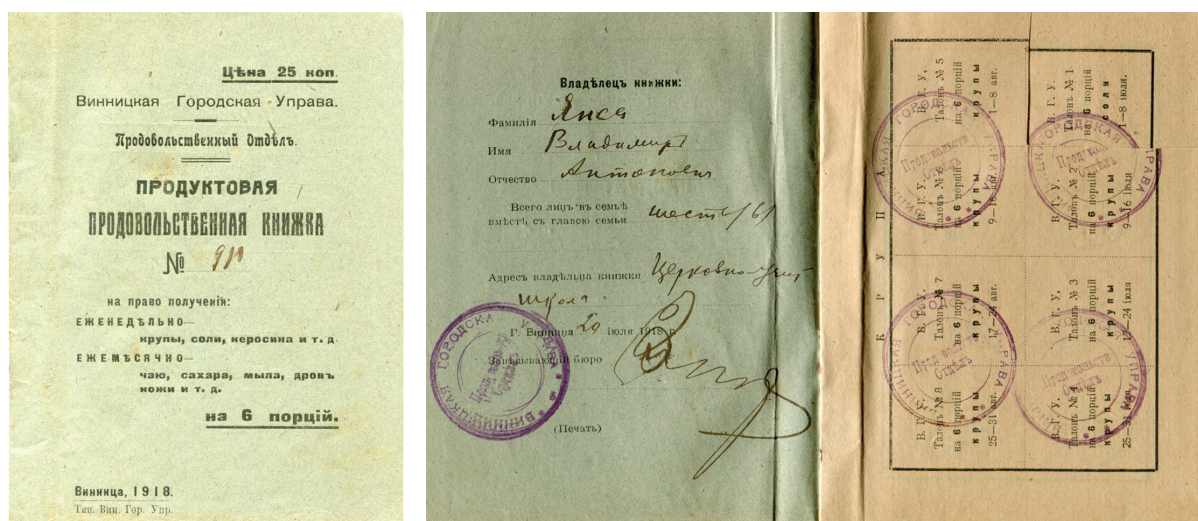 Цѣна 25 коп.
Винницкая Городская Управа.
Продовольственный Отдѣлъ.
ПРОДУКТОВАЯ
ПРОДОВОЛЬСТВЕННАЯ КНИЖКА
№
на право полученія:
ЕЖЕНЕДѢЛЬНО—
крупы, соли, керосина и т. д.
ЕЖЕМѢСЯЧНО—
чаю, сахара, мыла, дровъ
кожи и т. д.
на 6 порцій.
Винница, 1918.
Тип. Вин. Гор. Упр.
Владѣлецъ книжки:
Фамилія
Имя Владимиръ
Отчество Антонович
Всего лицъ въ семьѣ
вмѣстѣ съ главою семьи шесть /6/
Адресъ владѣльца книжки Церковно-учит
школа.
Г. Винница 20 іюля 1918 г.
Завѣдывающій бюро
(Печать)
ВИННИЦКАЯ ГОРОДСКА УПРАВА
КРУПА
В. Г. У.
Талонъ № 5
на 6 порцій
крупы
1—8 авг.
В. Г. У.
Талонъ № 1
на 6 порцій
соли
1—8 іюля.
В. Г. У.
Талонъ № 6
на 6 порцій
крупы
9—16 авг.
В. Г. У.
Талонъ № 2
на 6 порцій
крупы
9—16 іюля
В. Г. У.
Талонъ № 7
на 6 порцій
крупы
17—24 авг.
В. Г. У.
Талонъ № 3
на 6 порцій
крупы
17—24 іюля
В. Г. У.
Талонъ № 8
на 6 порцій
крупы
25—31 авг.
В. Г. У.
Талонъ № 4
на 6 порцій
крупы
25—31 іюля